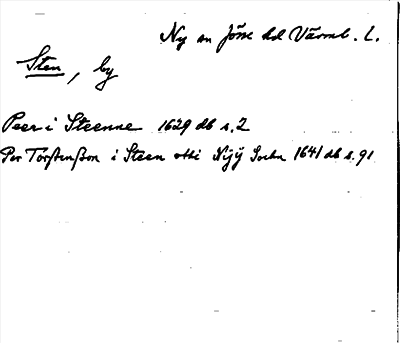 Ny sn Jösse hd Värml. L.
Sten, by
Peer i Steenne 1629 db s. 2
Per Torstenßon i Steen otti Nÿÿ Sochn 1641 db s. 91